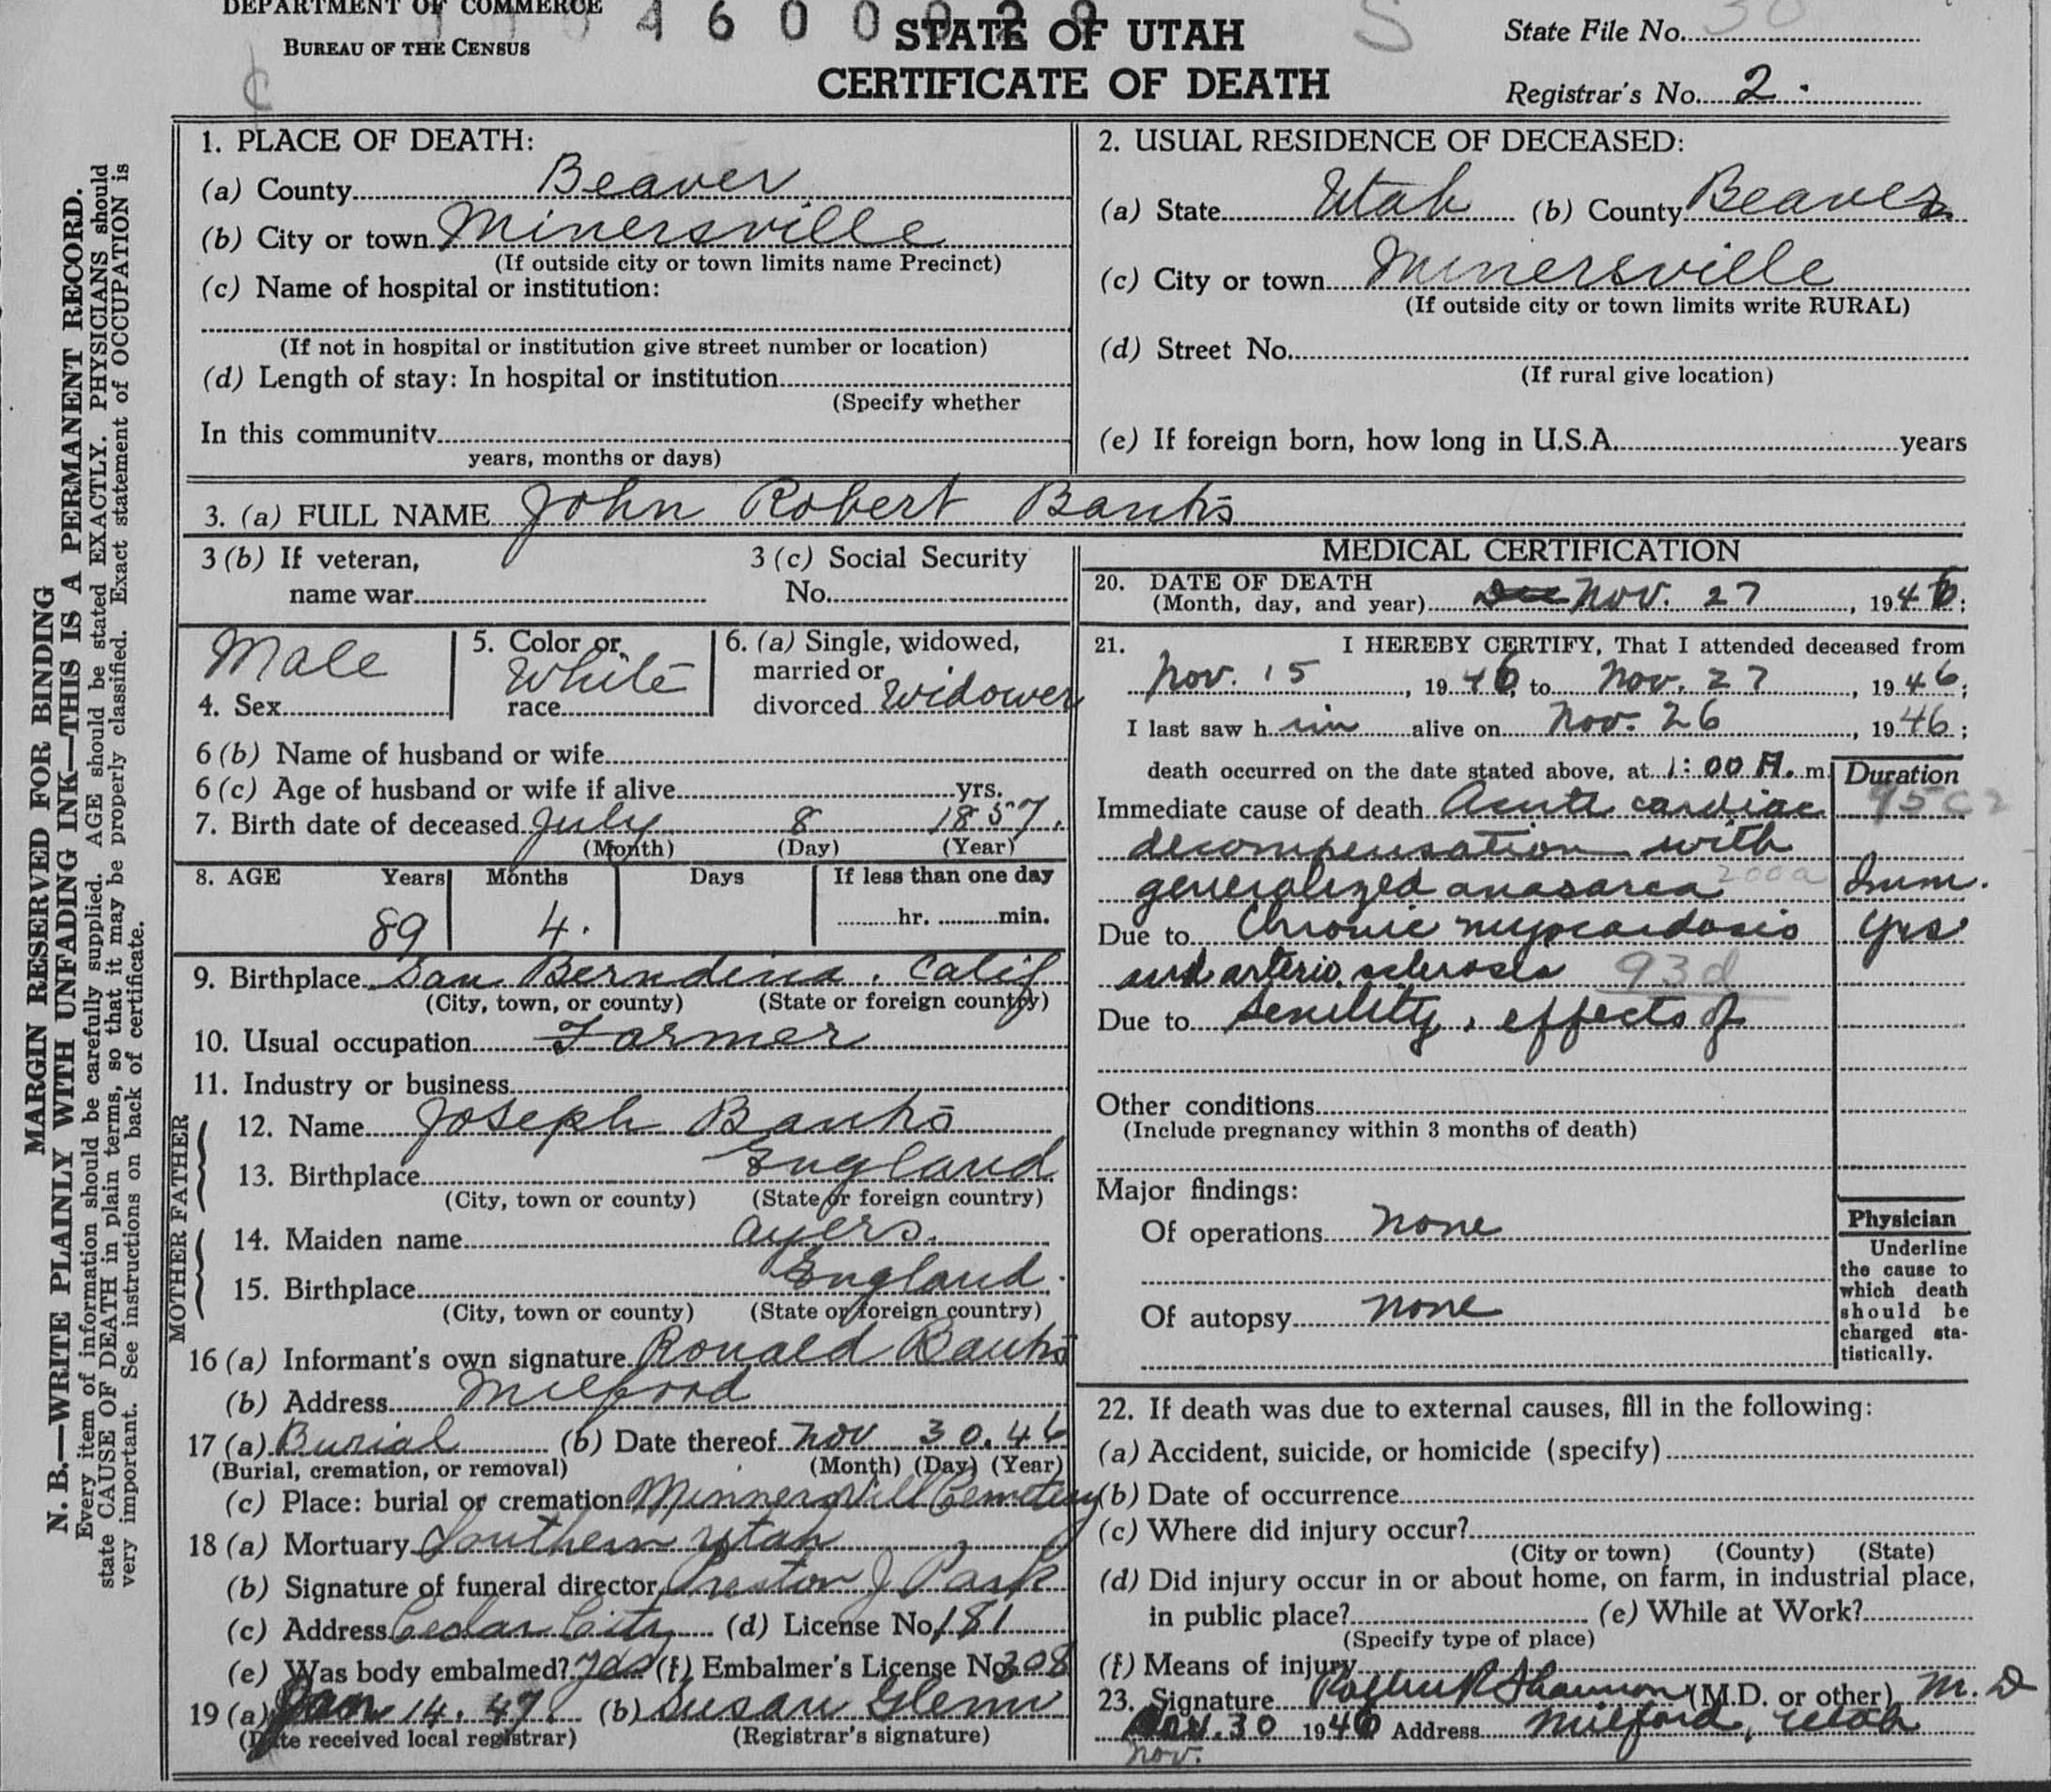 DEPARTMENT OF COMMERCE
BUREAU OF THE CENSUS
4 6 0 0
STATE OF UTAH
CERTIFICATE OF DEATH
State File No.
Registrar's No. 2.
MARGIN RESERVED FOR BINDING
N. B.—WRITE PLAINLY WITH UNFADING INK—THIS IS A PERMANENT RECORD.
Every item of information should be carefully supplied. AGE should be stated EXACTLY. PHYSICIANS should
state CAUSE OF DEATH in plain terms, so that it may be properly classified. Exact statement of OCCUPATION is
very important. See instructions on back of certificate.
1. PLACE OF DEATH:
(a) County Beaver
(b) City or town Minersville
(If outside city or town limits name Precinct)
(c) Name of hospital or institution:
(If not in hospital or institution give street number or location)
(d) Length of stay: In hospital or institution
(Specify whether
In this community
years, months or days)
2. USUAL RESIDENCE OF DECEASED:
(a) State Utah (b) County Beaver
(c) City or town Minersville
(If outside city or town limits write RURAL)
(d) Street No.
(If rural give location)
(e) If foreign born, how long in U.S.A. years
3. (a) FULL NAME John Robert Banks
3 (b) If veteran,
name war
3 (c) Social Security
No.
Male
4. Sex
5. Color or
White
race
6. (a) Single, widowed,
married or
divorced Widower
6 (b) Name of husband or wife
6 (c) Age of husband or wife if alive yrs.
7. Birth date of deceased July 8 1857.
(Month) (Day) (Year)
8. AGE Years Months Days If less than one day
89 4. hr. min.
9. Birthplace San Berndina. Calif
(City, town, or county) (State or foreign country)
10. Usual occupation Farmer
11. Industry or business
FATHER
12. Name Joseph Banks
13. Birthplace England
(City, town or county) (State or foreign country)
MOTHER
14. Maiden name Ayers.
15. Birthplace England.
(City, town or county) (State or foreign country)
16 (a) Informant's own signature Ronald Banks
(b) Address Milford
17 (a) Burial (b) Date thereof Nov 30. 46
(Burial, cremation, or removal) (Month) (Day) (Year)
(c) Place: burial or cremation Minnersvill Cemetery
18 (a) Mortuary Southern Utah
(b) Signature of funeral director Preston J Park
(c) Address Cedar City (d) License No. 181
(e) Was body embalmed? Yes (f) Embalmer's License No. 308
19 (a) Jan 14. 47. (b) Susan Glenn
(Date received local registrar) (Registrar's signature)
MEDICAL CERTIFICATION
20. DATE OF DEATH
(Month, day, and year) Dec Nov. 27, 1946;
21. I HEREBY CERTIFY, That I attended deceased from
Nov. 15, 1946 to Nov. 27, 1946;
I last saw h im alive on Nov. 26, 1946;
death occurred on the date stated above, at 1:00 A. m. Duration
Immediate cause of death Acute cardiac
decompensation with
generalized anasarca 200a
Due to Chronic myocardosis yrs
and arterio sclerosis 93d
Due to Senility, effects of
Other conditions
(Include pregnancy within 3 months of death)
Major findings:
Of operations none
Of autopsy none
Physician
Underline
the cause to
which death
should be
charged sta-
tistically.
22. If death was due to external causes, fill in the following:
(a) Accident, suicide, or homicide (specify)
(b) Date of occurrence
(c) Where did injury occur?
(City or town) (County) (State)
(d) Did injury occur in or about home, on farm, in industrial place,
in public place? (e) While at Work?
(Specify type of place)
(f) Means of injury
23. Signature Shannon (M.D. or other) M. D
30 1946 Address Milford, Utah
Nov.